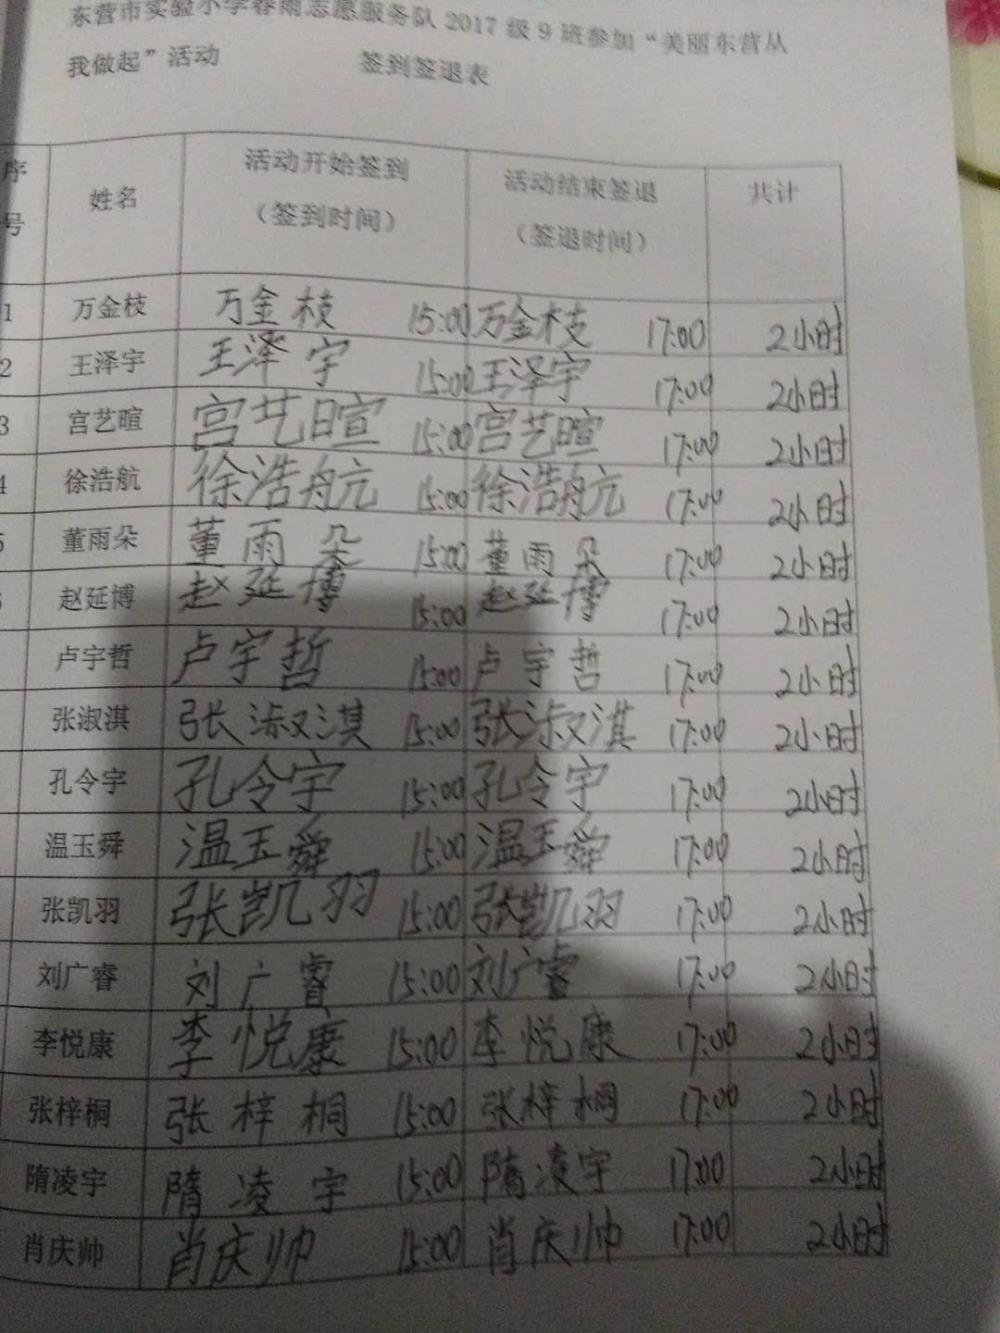 东营市实验小学春雨志愿服务队 2017 级 9 班参加“美丽东营从
我做起”活动 签到签退表
序号 姓名 活动开始签到（签到时间） 活动结束签退（签退时间） 共计
1 万金枝 万金枝 15:00 万金枝 17:00 2小时
2 王泽宇 王泽宇 15:00 王泽宇 17:00 2小时
3 宫艺暄 宫艺暄 15:00 宫艺暄 17:00 2小时
4 徐浩航 徐浩航 15:00 徐浩航 17:00 2小时
5 董雨朵 董雨朵 15:00 董雨朵 17:00 2小时
赵延博 赵延博 15:00 赵延博 17:00 2小时
卢宇哲 卢宇哲 15:00 卢宇哲 17:00 2小时
张淑淇 张淑淇 15:00 张淑淇 17:00 2小时
孔令宇 孔令宇 15:00 孔令宇 17:00 2小时
温玉舜 温玉舜 15:00 温玉舜 17:00 2小时
张凯羽 张凯羽 15:00 张凯羽 17:00 2小时
刘广睿 刘广睿 15:00 刘广睿 17:00 2小时
李悦康 李悦康 15:00 李悦康 17:00 2小时
张梓桐 张梓桐 15:00 张梓桐 17:00 2小时
隋凌宇 隋凌宇 15:00 隋凌宇 17:00 2小时
肖庆帅 肖庆帅 15:00 肖庆帅 17:00 2小时